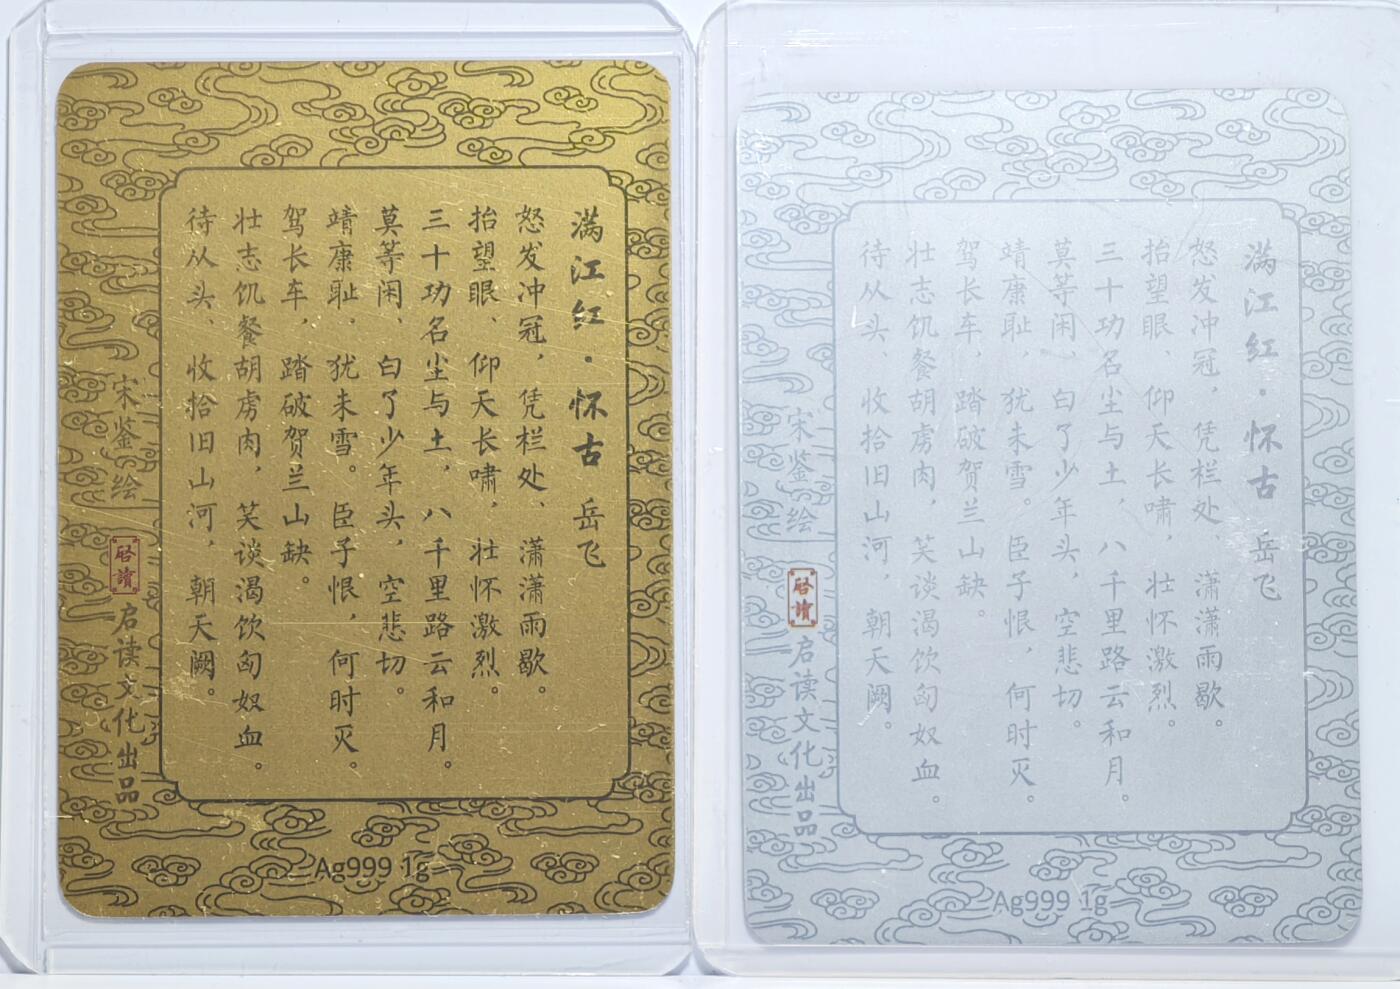 满江红·怀古 岳飞
怒发冲冠，凭栏处、潇潇雨歇。
抬望眼、仰天长啸，壮怀激烈。
三十功名尘与土，八千里路云和月。
莫等闲、白了少年头，空悲切。
靖康耻，犹未雪。臣子恨，何时灭。
驾长车，踏破贺兰山缺。
壮志饥餐胡虏肉，笑谈渴饮匈奴血。
待从头、收拾旧山河，朝天阙。
宋鉴(绘)
启读
启读文化出品
Ag999 1g
满江红·怀古 岳飞
怒发冲冠，凭栏处、潇潇雨歇。
抬望眼、仰天长啸，壮怀激烈。
三十功名尘与土，八千里路云和月。
莫等闲、白了少年头，空悲切。
靖康耻，犹未雪。臣子恨，何时灭。
驾长车，踏破贺兰山缺。
壮志饥餐胡虏肉，笑谈渴饮匈奴血。
待从头、收拾旧山河，朝天阙。
宋鉴(绘)
启读
启读文化出品
Ag999 1g